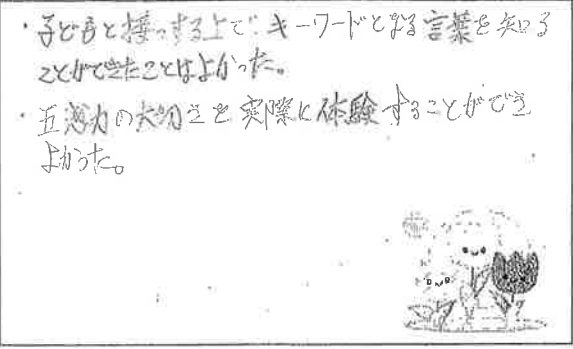 ・子どもと接っする上で、キーワードとなる言葉を知る
ことができたことはよかった。
・五感力の大切さを実際に体験することができ
よかった。